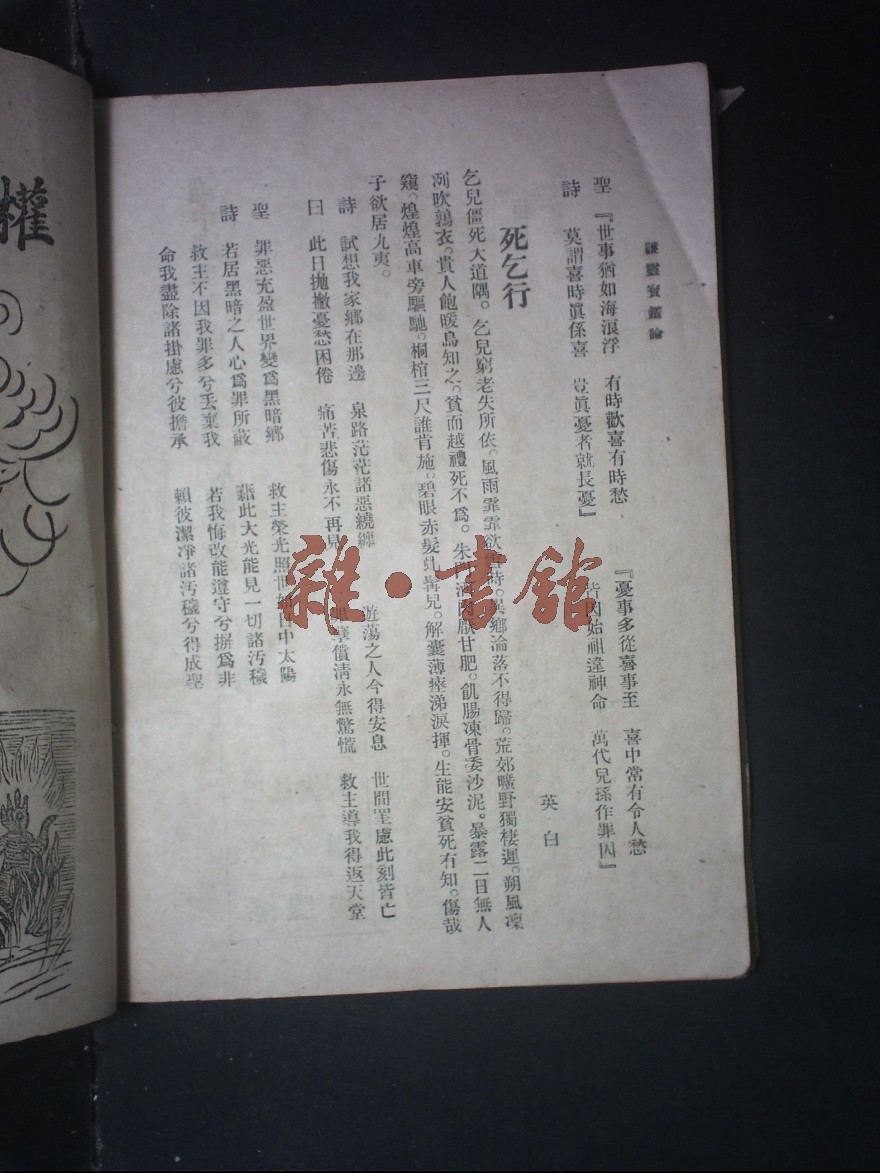 靈寶鑑論
聖 『世事猶如海浪浮 有時歡喜有時愁 『憂事多從喜事至 喜中常有令人愁
詩 莫謂喜時眞係喜 豈眞憂者就長憂』 皆因始祖違神命 萬代兒孫作罪囚』
死乞行
英白
乞兒僵死大道隅。乞兒窮老失所依。風雨霏霏欲雪時。異鄉淪落不得歸。荒郊曠野獨棲遲。朔風凜
冽吹鶉衣。貴人飽暖鳥知之。貧而越禮死不爲。朱門酒肉厭甘肥。飢腸凍骨委沙泥。暴露二日無人
窺。煌煌高車旁驅馳。桐棺三尺誰肯施。碧眼赤髮兒。解囊薄瘞涕淚揮。生能安貧死有知。傷哉
子欲居九夷。
詩 試想我家鄉在那邊 泉路茫茫諸惡繞纏 遊蕩之人今得安息 世間罣慮此刻皆亡
曰 此日拋撇憂愁困倦 痛苦悲傷永不再見 孽償清永無驚慌 救主導我得返天堂
聖 罪惡充盈世界變爲黑暗鄉 救主榮光照世如日中太陽
詩 若居黑暗之人心爲罪所蔽 藉此大光能見一切諸汚穢
救主不因我罪多兮丢棄我 若我悔改能遵守兮摒爲非
命我盡除諸掛慮兮彼擔承 賴彼潔凈諸汚穢兮得成聖
權
雜·書館